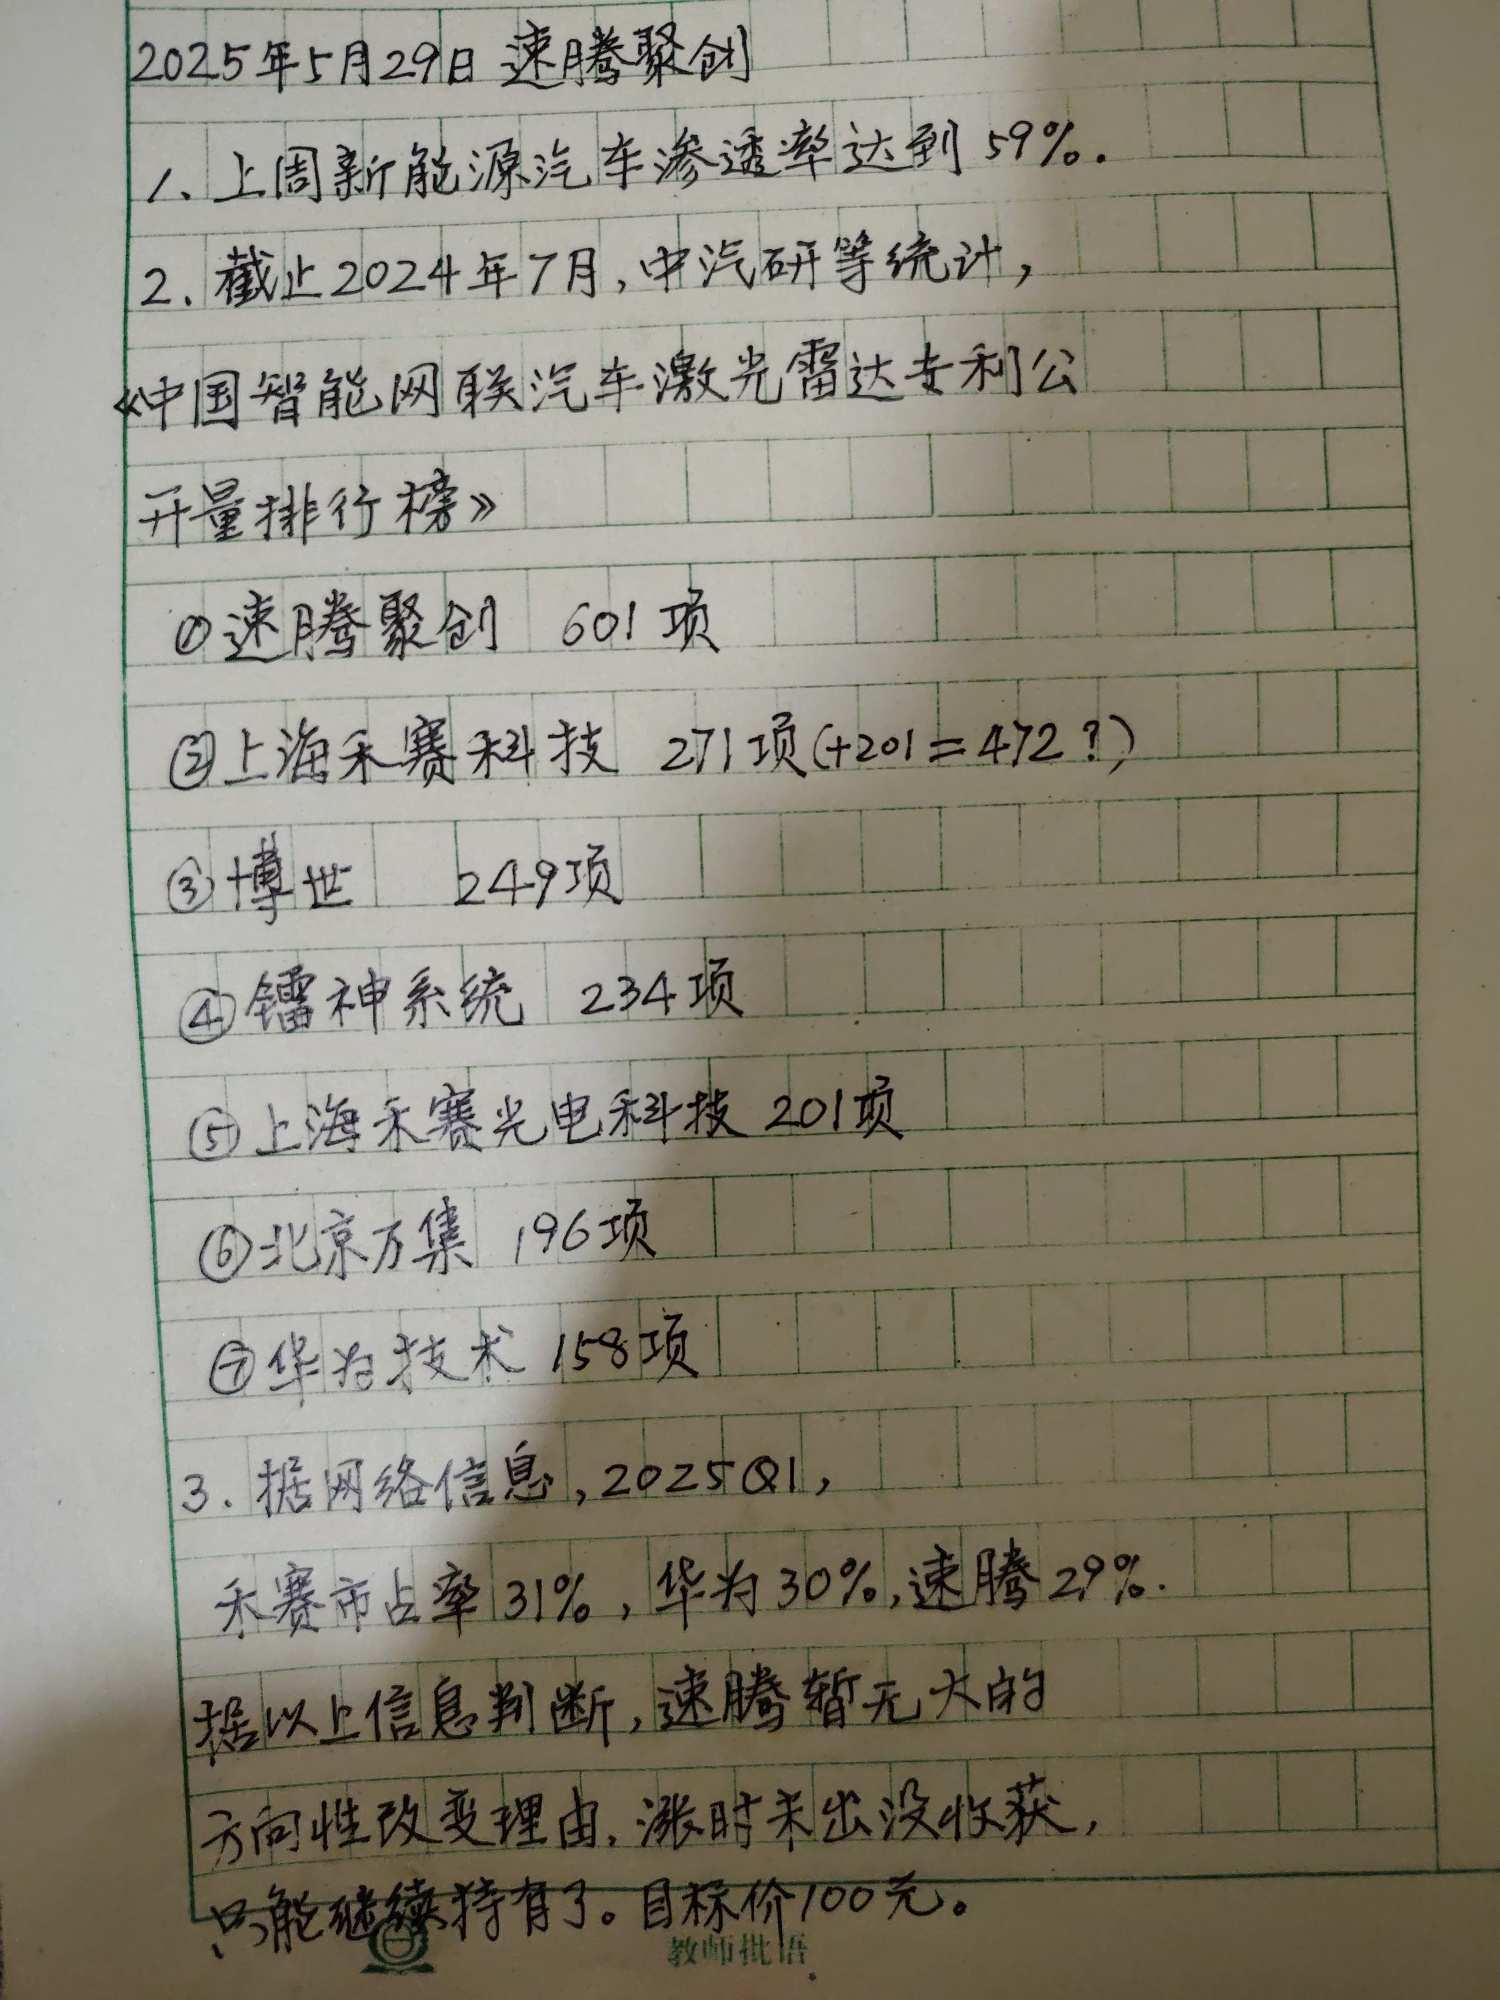 2025年5月29日 速腾聚创
1、上周新能源汽车渗透率达到59%.
2、截止2024年7月,中汽研等统计,
《中国智能网联汽车激光雷达专利公
开量排行榜》
①速腾聚创 601项
②上海禾赛科技 271项(+201=472?)
③博世 249项
④镭神系统 234项
⑤上海禾赛光电科技 201项
⑥北京万集 196项
⑦华为技术 158项
3.据网络信息,2025Q1,
禾赛市占率31%,华为30%,速腾29%.
据以上信息判断,速腾暂无大的
方向性改变理由.涨时未出没收获,
只能继续持有了。目标价100元。
教师批语